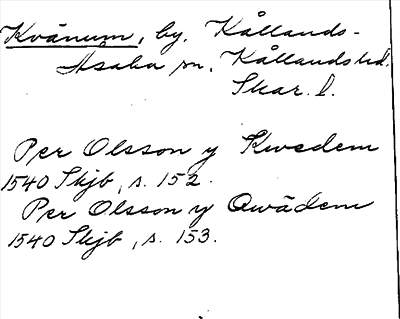 Kvänum, by, Kållands-
Åsaka sn, Kållands hd.
Skar. l.
Per Olsson y Kwedem
1540 Skjb, s. 152.
Per Olsson y Qwädem
1540 Skjb, s. 153.